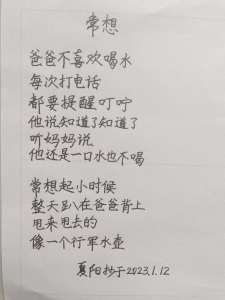 常想
爸爸不喜欢喝水
每次打电话
都要提醒叮咛
他说知道了知道了
听妈妈说
他还是一口水也不喝
常想起小时候
整天趴在爸爸背上
甩来甩去的
像一个行军水壶
夏阳抄于2023.1.12